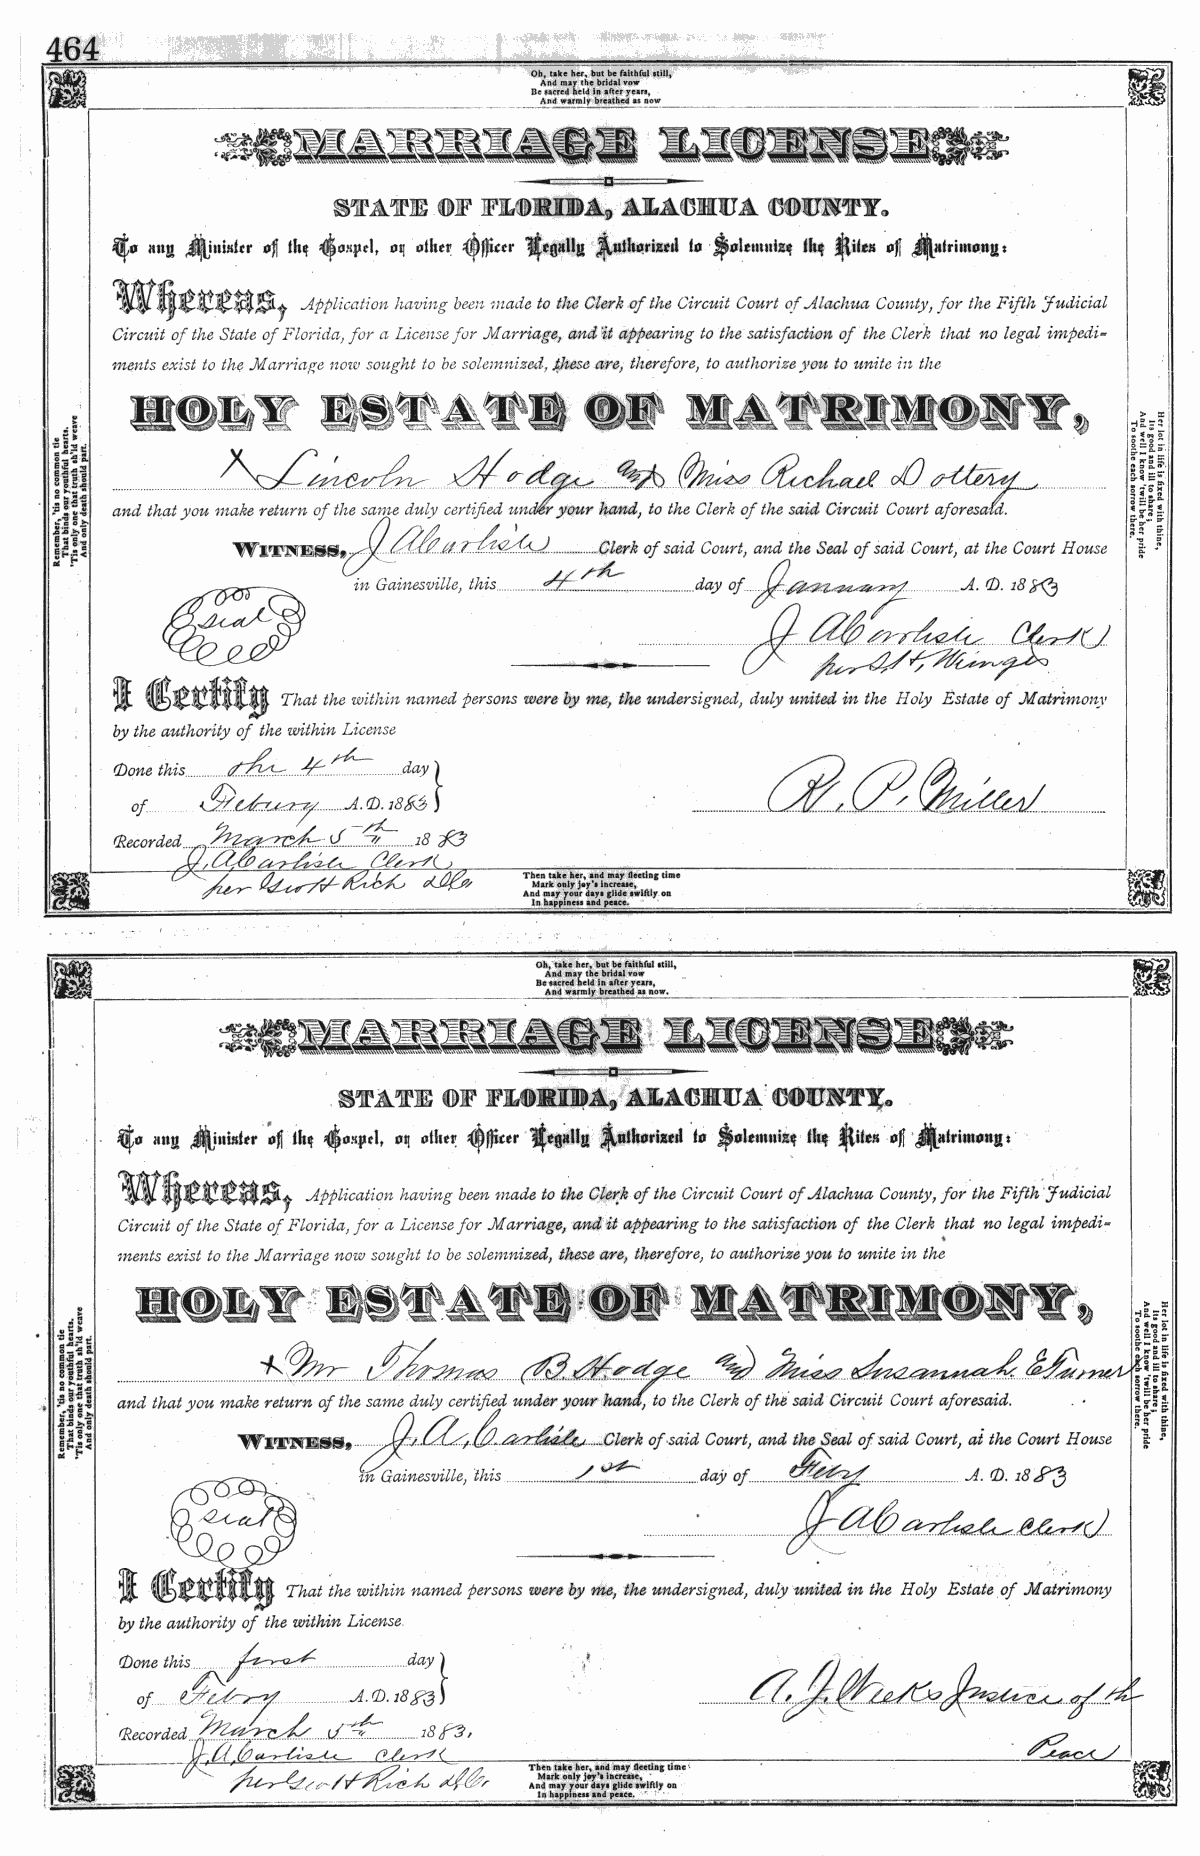 464
Oh, take her, but be faithful still,
And may the bridal vow
Be sacred held in after years,
And warmly breathed as now
MARRIAGE LICENSE
STATE OF FLORIDA, ALACHUA COUNTY.
To any Minister of the Gospel, or other Officer Legally Authorized to Solemnize the Rites of Matrimony:
Whereas, Application having been made to the Clerk of the Circuit Court of Alachua County, for the Fifth Judicial
Circuit of the State of Florida, for a License for Marriage, and it appearing to the satisfaction of the Clerk that no legal impedi-
ments exist to the Marriage now sought to be solemnized, these are, therefore, to authorize you to unite in the
HOLY ESTATE OF MATRIMONY,
X Lincoln Hodge and Miss Richael Dottery
and that you make return of the same duly certified under your hand, to the Clerk of the said Circuit Court aforesaid.
WITNESS, J A Carlisle Clerk of said Court, and the Seal of said Court, at the Court House
in Gainesville, this 4th day of January A. D. 1883
seal
J A Carlisle Clerk
per S. H. Wienges
I Certify That the within named persons were by me, the undersigned, duly united in the Holy Estate of Matrimony
by the authority of the within License
Done this the 4th day
of Febury A.D. 1883
R. P. Miller
Recorded March 5th 1883
J. A Carlisle Clerk
per Geo H Rich D.C.
Remember, 'tis no common tie
That binds our youthful hearts.
'Tis only one that truth sh'ld weave
And only death should part.
Her lot in life is fixed with thine,
Its good and ill to share;
And well I know 'twill be her pride
To soothe each sorrow there.
Then take her, and may fleeting time
Mark only joy's increase,
And may your days glide swiftly on
In happiness and peace.
Oh, take her, but be faithful still,
And may the bridal vow
Be sacred held in after years,
And warmly breathed as now.
MARRIAGE LICENSE
STATE OF FLORIDA, ALACHUA COUNTY.
To any Minister of the Gospel, or other Officer Legally Authorized to Solemnize the Rites of Matrimony:
Whereas, Application having been made to the Clerk of the Circuit Court of Alachua County, for the Fifth Judicial
Circuit of the State of Florida, for a License for Marriage, and it appearing to the satisfaction of the Clerk that no legal impedi-
ments exist to the Marriage now sought to be solemnized, these are, therefore, to authorize you to unite in the
HOLY ESTATE OF MATRIMONY,
X Mr Thomas B. Hodge and Miss Susannah. E Turner
and that you make return of the same duly certified under your hand, to the Clerk of the said Circuit Court aforesaid.
WITNESS, J. A. Carlisle Clerk of said Court, and the Seal of said Court, at the Court House
in Gainesville, this 1st day of Feby A. D. 1883
seal
J A Carlisle Clerk
I Certify That the within named persons were by me, the undersigned, duly united in the Holy Estate of Matrimony
by the authority of the within License.
Done this first day
of Febry A.D. 1883
A. J. Weeks Justice of th
Peace
Recorded March 5th 1883.
J. A. Carlisle Clerk
per Geo H Rich D.C.
Remember, 'tis no common tie
That binds our youthful hearts.
'Tis only one that truth sh'ld weave
And only death should part.
Her lot in life is fixed with thine,
Its good and ill to share;
And well I know 'twill be her pride
To soothe each sorrow there.
Then take her, and may fleeting time
Mark only joy's increase,
And may your days glide swiftly on
In happiness and peace.